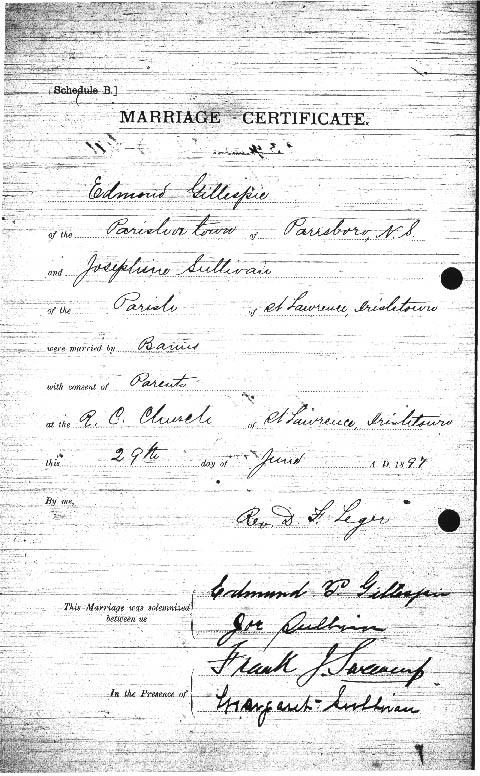 [Schedule B.]
MARRIAGE CERTIFICATE.
Edmond Gillespie
of the Parish or town of Parrsboro, N.S.
and Josephine Sullivan
of the Parish of St Lawrence, Irishtown
were married by Banns
with consent of Parents
at the R. C. Church of St Lawrence, Irishtown
this 29th day of June A.D. 1897
By me,
Rev. D. F. Leger
This Marriage was solemnized between us
Edmund P Gillespie
Joe Sullivan
In the Presence of
Frank J.
Margaret Sullivan